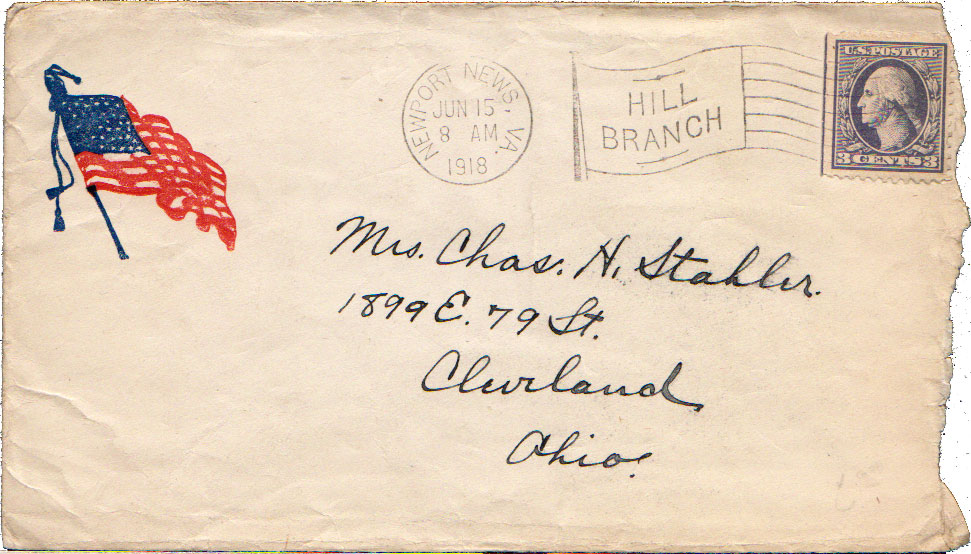 NEWPORT NEWS, VA.
JUN 15
8 AM
1918
HILL
BRANCH
U.S. POSTAGE
3 CENTS 3
Mrs. Chas. H. Stahler.
1899 E. 79 St.
Cleveland
Ohio.